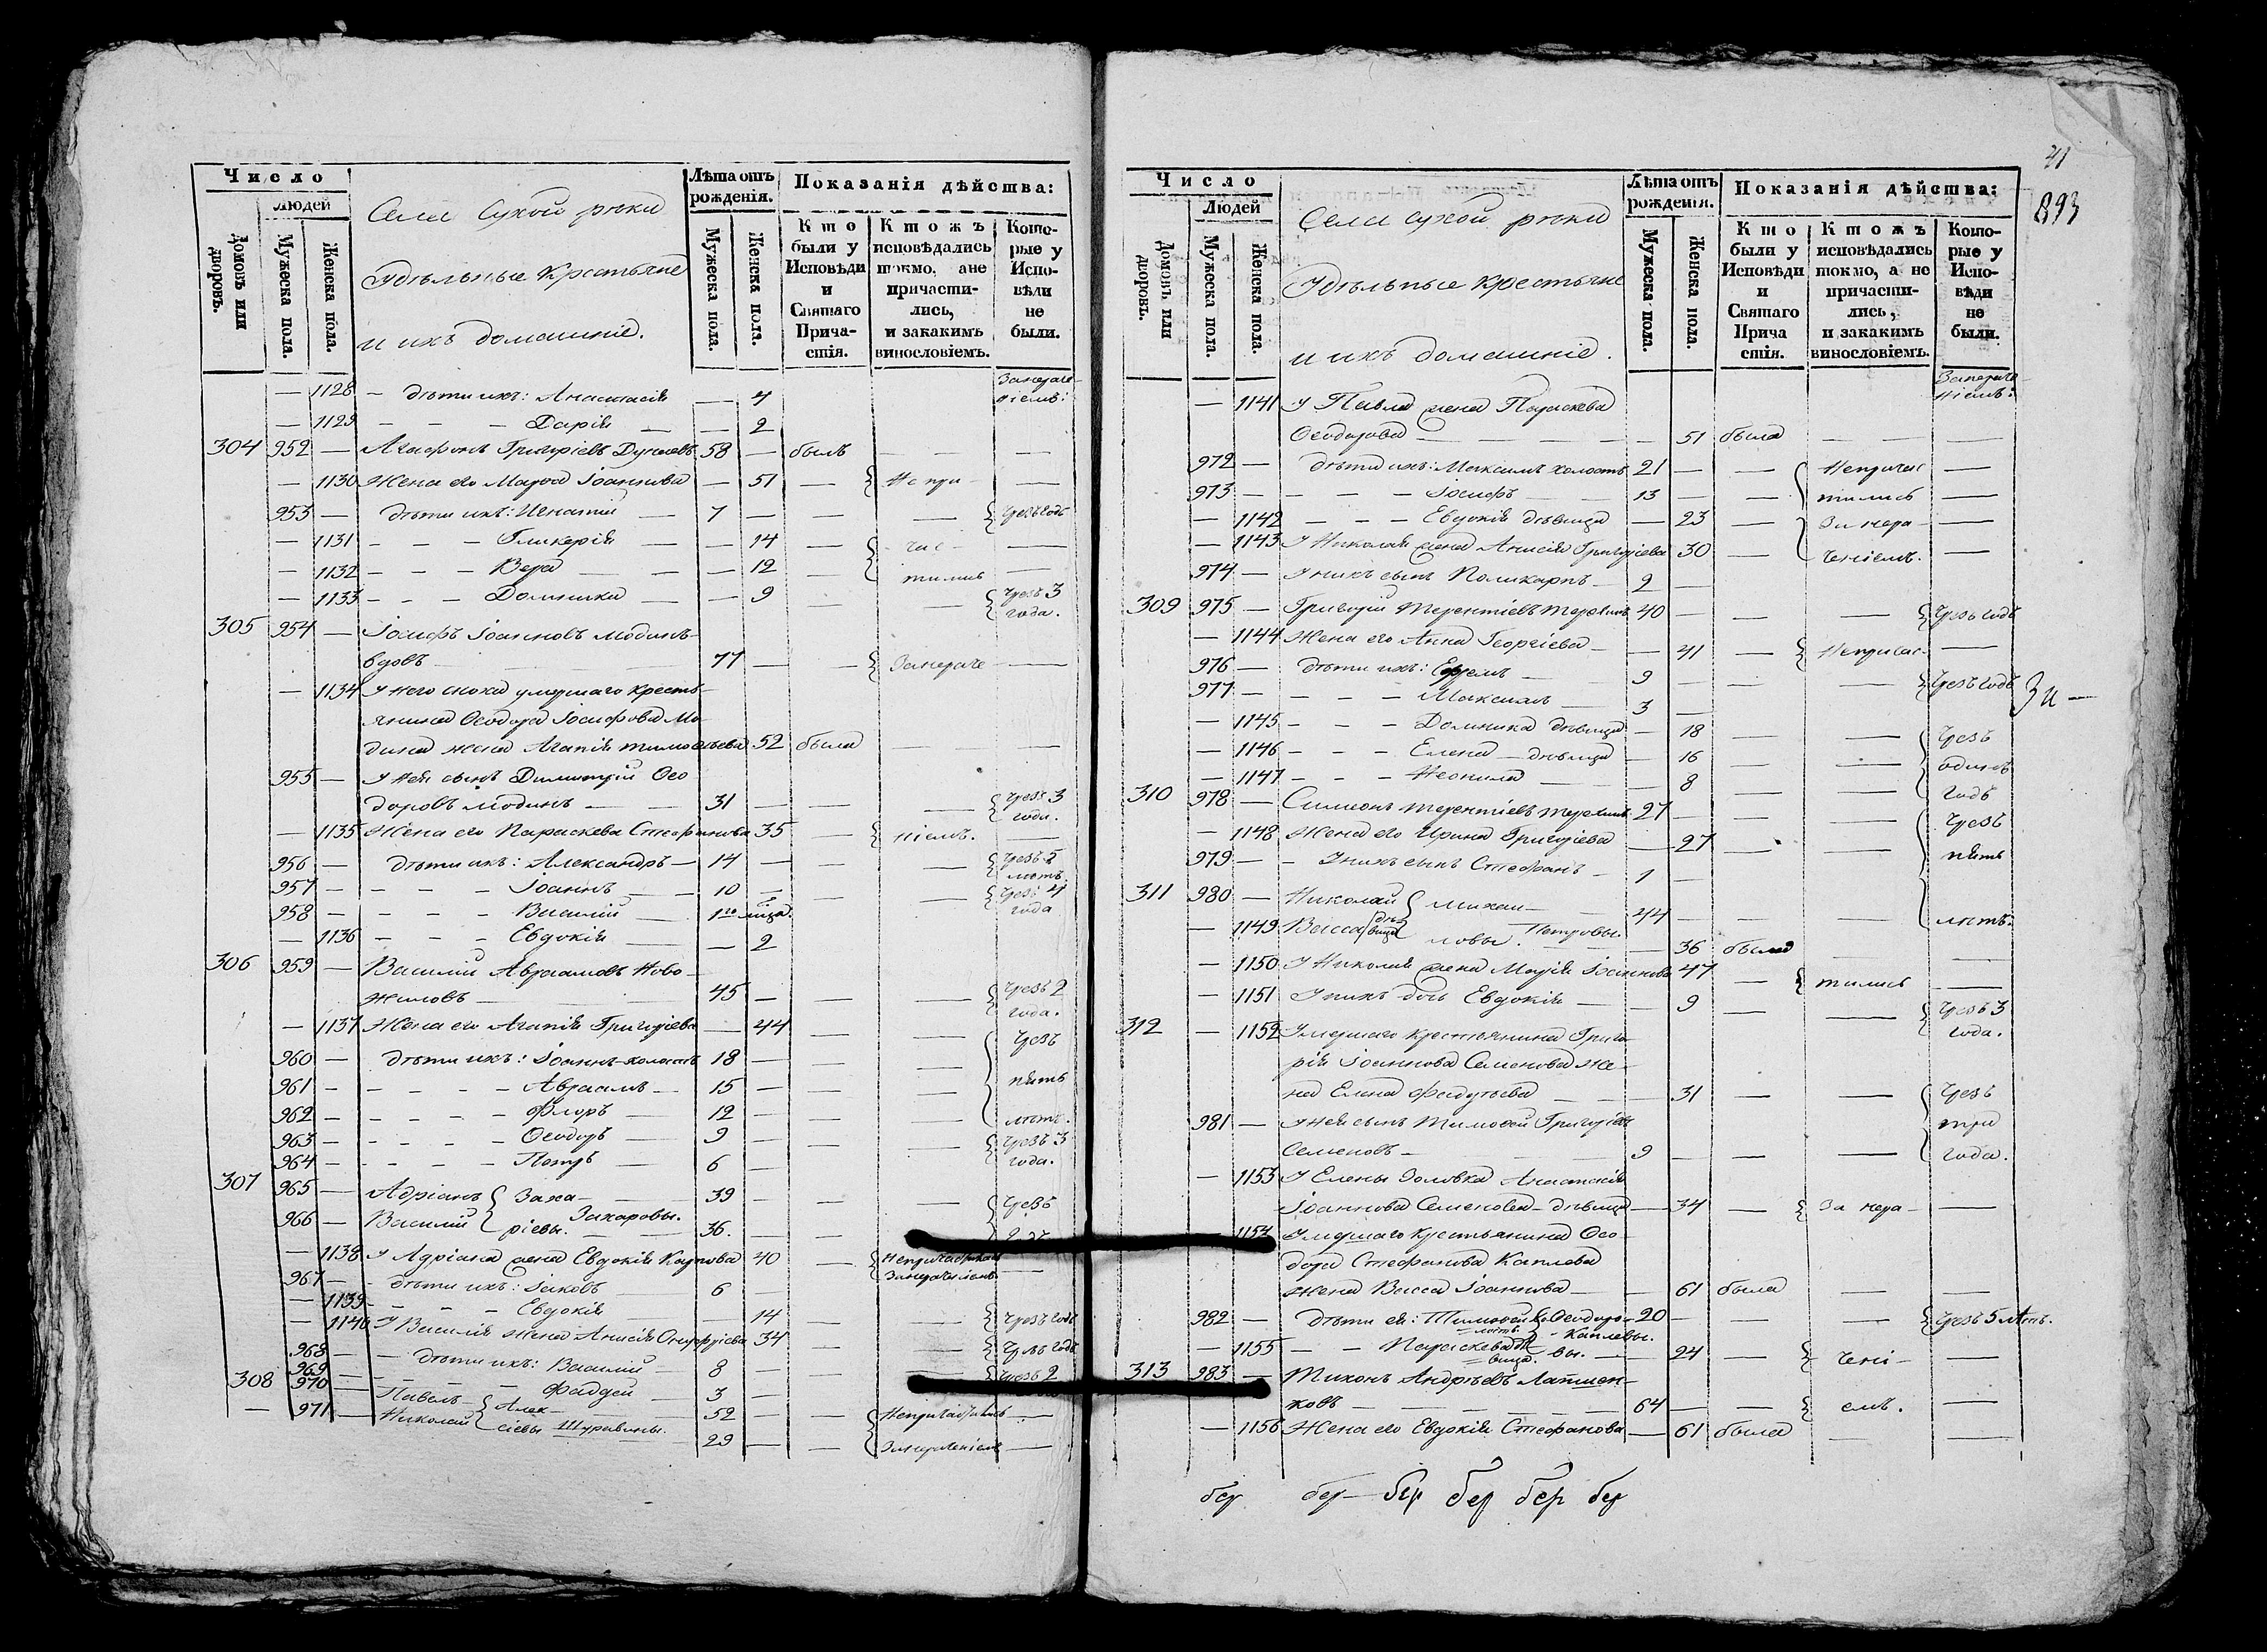 Число
Людей
Домовъ или дворовъ.
Мужеска пола.
Женска пола.
Села Сухой рѣки
Удѣльные крестьяне
и ихъ домашніе.
Лѣта отъ рожденія.
Мужеска пола.
Женска пола.
Показанія дѣйства:
Кто были у Исповѣди и Святаго Причастія.
Ктожъ исповѣдались токмо, ане причастились, и закакимъ винословіемъ.
Которые у Исповѣди не были.
— 1128 — дѣти ихъ: Анастасія — 4
— 1129 — — — Дарія — — 2
304 952 — Агафонъ Григоріевъ 58 — былъ — —
— 1130 Жена его Марѳа Іоаннова — 51 — { Не при- —
953 — дѣти ихъ: Игнатій — 7 — — — { Чрезъ годъ
— 1131 — — — Гликерія — — 14 — { час- —
— 1132 — — — Вера — — 12 — тились —
— 1133 — — — Домника — — 9 — — { Чрезъ 3 года.
305 954 — Іосифъ Іоанновъ Модинъ
вдовъ — 77 — — { Занераче- —
— 1134 У него сноха умершаго кресть-
янина Ѳеодора Іосифова Мо-
дина жена Агапія Тимоѳеева 52 была — —
955 — У нея сынъ Димитрій Ѳео
доровъ Модинъ — 31 — — — { Чрезъ 3 года.
— 1135 Жена его Параскева Стефанова 35 — { ніемъ. —
956 — дѣти ихъ: Александръ — 14 — — — { Чрезъ 5 лѣтъ.
957 — — — — Іоаннъ — 10 — — — { Чрезъ 4 года
958 — — — — Василій — 1го мца.
— 1136 — — — Евдокія — — 2
306 959 — Василій Авраамовъ Ново-
жиловъ — 45 — — — { Чрезъ 2 года.
— 1137 Жена его Агапія Григоріева — 44 — — { Чрезъ
960 — дѣти ихъ: Іоаннъ холостъ 18 — —
961 — — — — Авраамъ — 15 — — — пять
962 — — — — Флоръ — 12 — — — лѣтъ.
963 — — — — Ѳеодоръ — 9 — — — { Чрезъ 3 года.
964 — — — — Петръ — 6 —
307 965 — Адріанъ { Заха- 39 — — — { Чрезъ
966 — Василій { ріевы. Захаровы. 36. — — —
— 1138 У Адріана жена Евдокія Карпова 40 — { Непричастилась Занераченіемъ —
967 — — дѣти ихъ: Іаковъ — 6 —
— 1139 — — — Евдокія — 14 — — { Чрезъ годъ
— 1140 У Василія жена Анисія Онуфріева 34 — — { Чрезъ годъ
968 — — дѣти ихъ: Василій — 8 — — — { Чрезъ 2
969 — — — Фаддей — 3 —
308 970 — Павелъ { Алек- 52 — — { Непричастились —
— 971 — Николай { сіевы 29 — — { Занераченіемъ —
41
893
Число
Людей
Домовъ или дворовъ.
Мужеска пола.
Женска пола.
Села Сухой рѣки
Удѣльные крестьяне
и ихъ домашніе.
Лѣта отъ рожденія.
Мужеска пола.
Женска пола.
Показанія дѣйства:
Кто были у Исповѣди и Святаго Причастія.
Ктожъ исповѣдались токмо, а не причастились, и закакимъ винословіемъ.
Которые у Исповѣди не были.
— 1141 У Павла жена Параскева
Ѳеодорова — — 51 была — —
972 — дѣти ихъ: Максимъ холостъ 21 — — { Непричас —
973 — — — — Іосифъ — 13 — — тились —
— 1142 — — — Евдокія дѣвица — 23 — За нера- —
— 1143 У Николая жена Анисія Григоріева 30 — ченіемъ. —
974 — У нихъ сынъ Поликарпъ — 2 —
309 975 — Григорій Терентіевъ 40 — — { Чрезъ годъ
— 1144 Жена его Анна Георгіева — — 41 — { Непричас- —
976 — дѣти ихъ: Ефремъ — 9 — — — { Чрезъ годъ
977 — — — — Максимъ — 3 —
— 1145 — — — Домника дѣвица — 18 — — { Чрезъ
— 1146 — — — Елена — дѣвица — 16 — — одинъ
— 1147 — — — Неонила — — 8 — — годъ
310 978 — Симеонъ Терентіевъ 27 — — — { Чрезъ
— 1148 Жена его Ирина Григоріева — 27 — — пять
979 — — У нихъ сынъ Стефанъ — 1 —
311 980 — Николай { Михаи- 44 — — — лѣтъ.
— 1149 Васса дѣвица { ловы. Петровы. — 36 была — —
— 1150 У Николая жена Марія Іоаннова 47 — { тились —
— 1151 У нихъ дочь Евдокія — — 9 — — { Чрезъ 3 года.
312 — 1152 Умершаго крестьянина Григо-
рія Іоаннова Семенова же-
на Елена — — 31 — — { Чрезъ
981 — У нея сынъ Тимоѳей Григоріевъ три
Семеновъ — 9 — — — года.
— 1153 У Елены золовка Анастасія
Іоаннова Семенова — дѣвица — 34 — { За нера- —
1154 Умершаго крестьянина Ѳео-
дора Стефанова Каплева
жена Васса Іоаннова — — 61 была — —
982 — дѣти ея: Тимоѳей Ѳеодоро- 20 — — — { Чрезъ 5 лѣтъ.
— 1155 — — Параскева дѣвица вы. Каплевы. — 24 — { чені- —
313 983 — Тихонъ Андреевъ Лаптен-
ковъ — 64 — — { емъ. —
— 1156 Жена его Евдокія Стефанова — 61 была — —
бер бер — бер бер бер бер